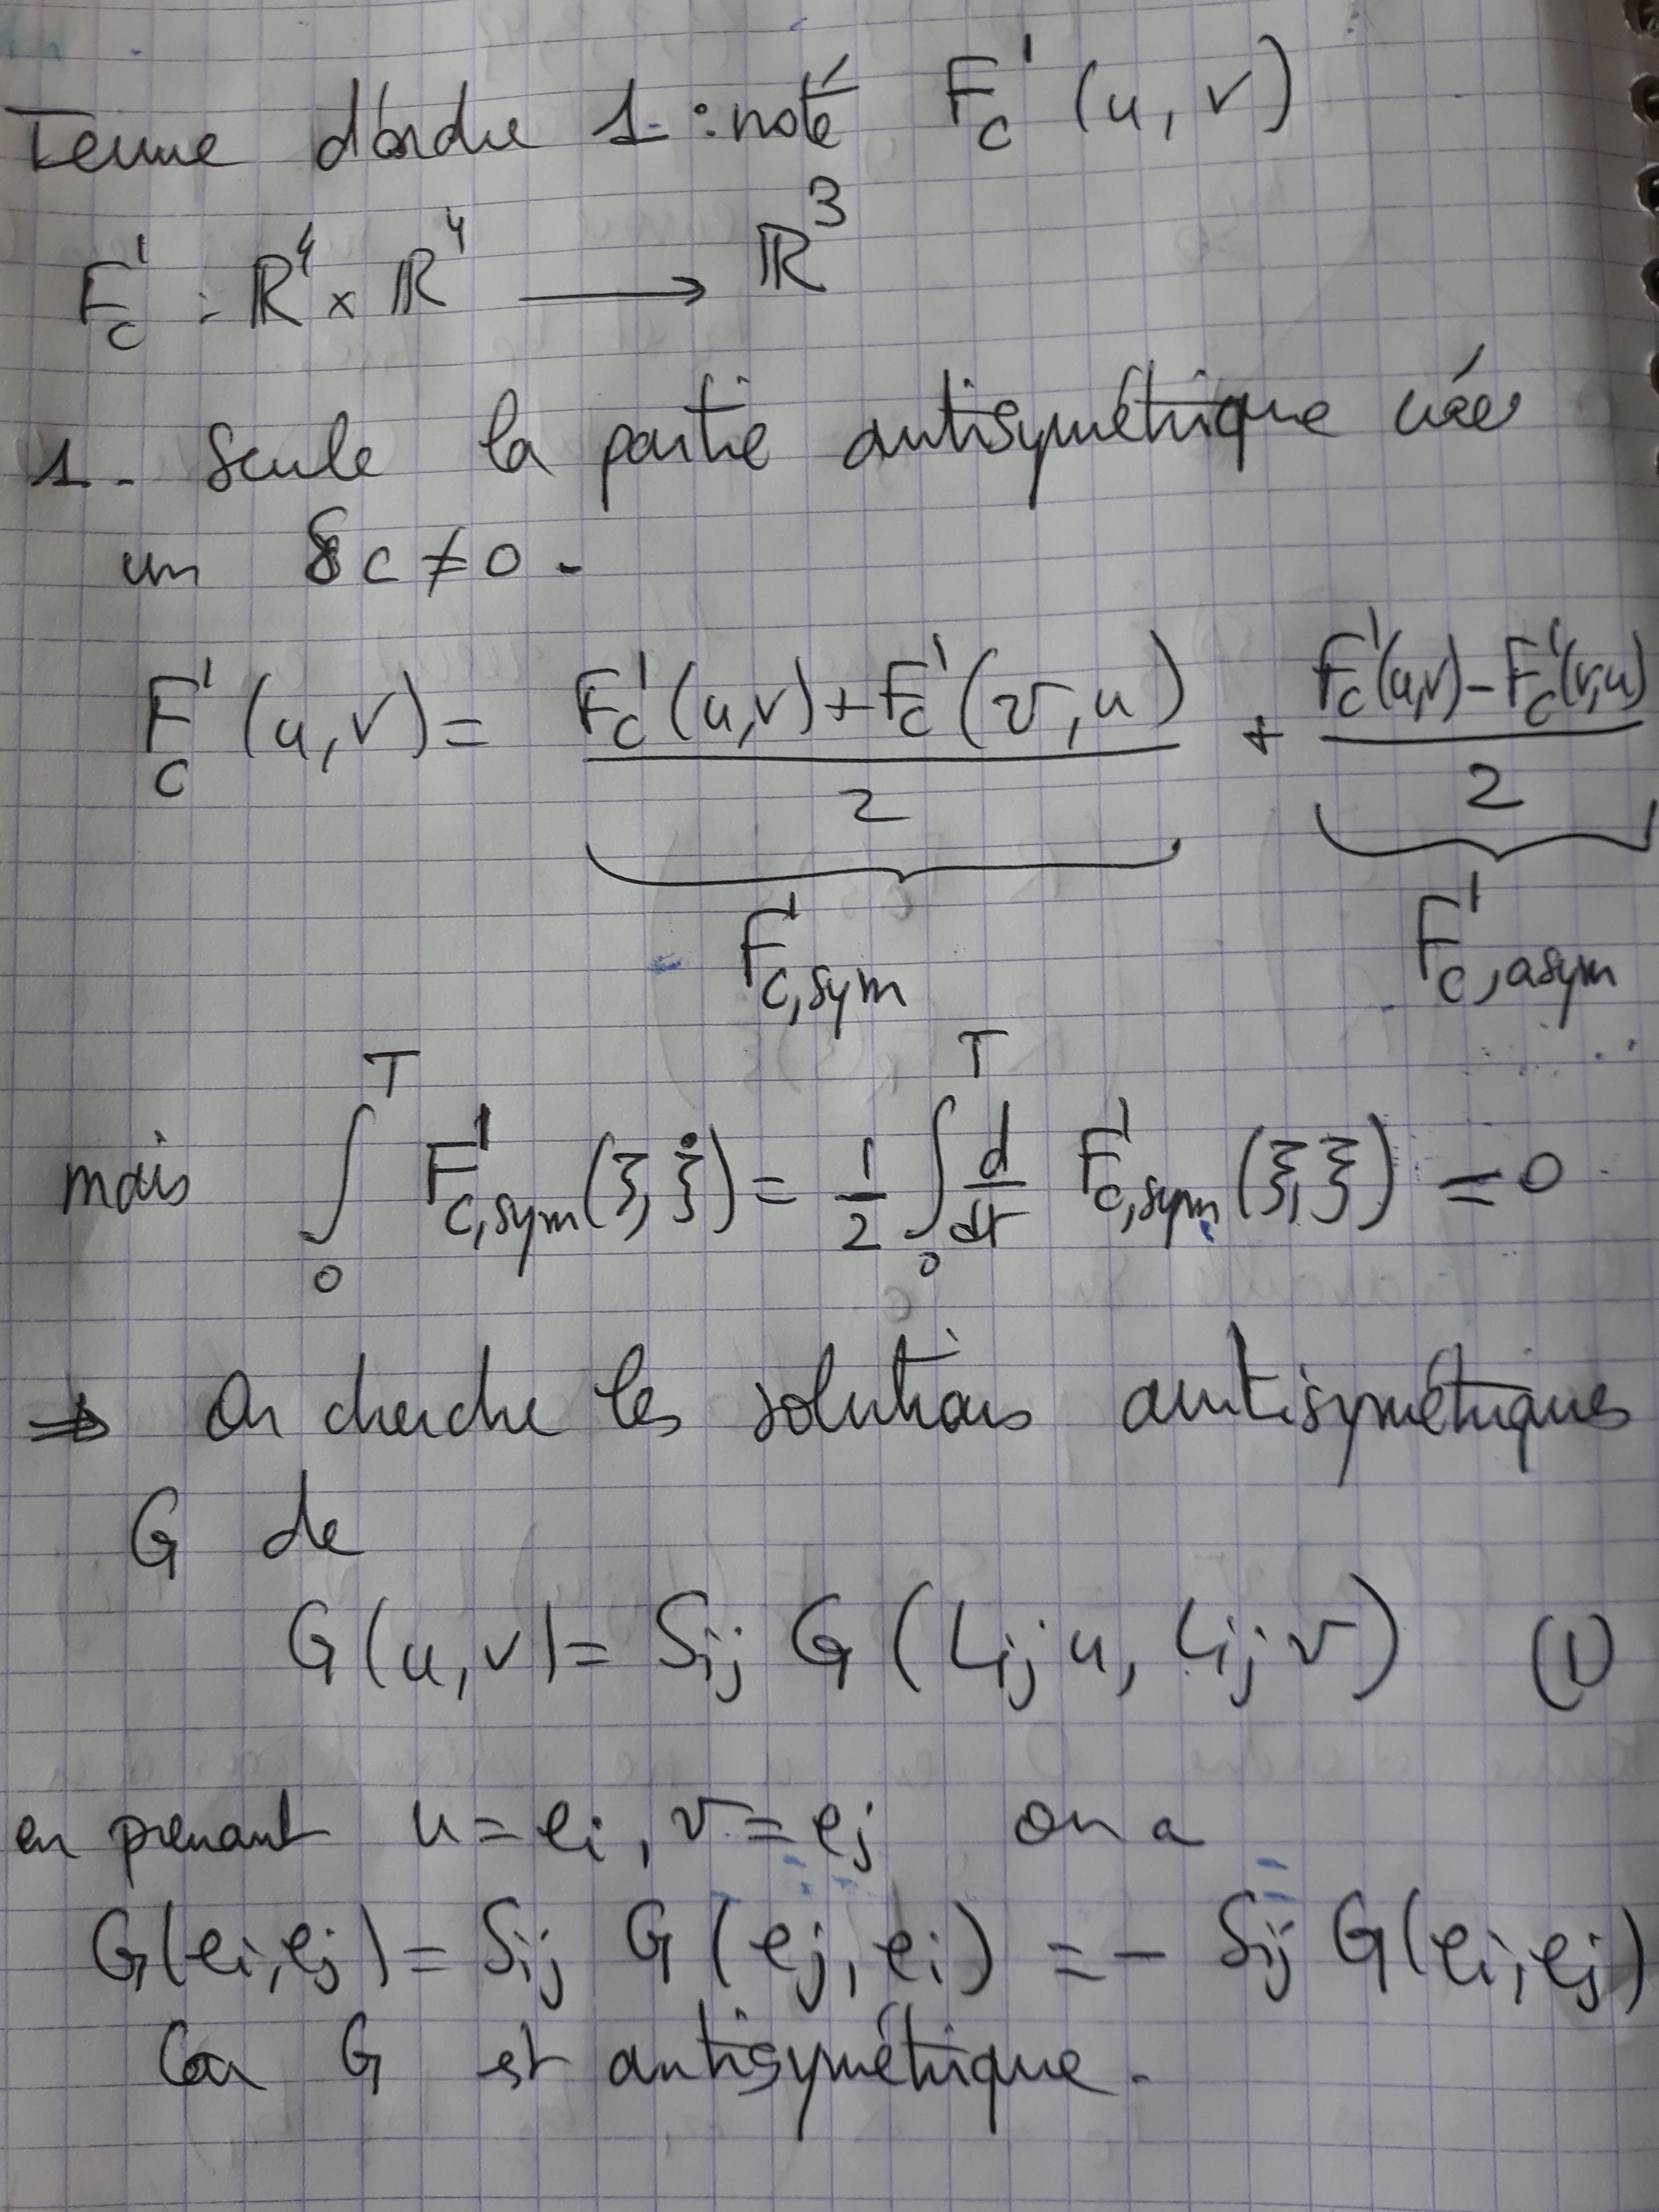 Terme d'ordre 1 : noté F_c^1 (u, v)
F_c^1 : ℝ^4 × ℝ^4 ⟶ ℝ^3
1 - Seule la partie antisymétrique crée
un δc ≠ 0 -
F_c^1 (u, v) = (F_c^1(u,v) + F_c^1(v, u)) / 2 + (F_c^1(u,v) - F_c^1(v,u)) / 2
F^1_{c,sym} F^1_{c,asym}
mais ∫_0^T F^1_{c,sym}(ξ, ξ̇) = 1/2 ∫_0^T d/dt F^1_{c,sym}(ξ, ξ) = 0
⇒ On cherche les solutions antisymétriques
G de
G(u, v) = S_ij G(L_ij u, L_ij v) (1)
en prenant u = e_i, v = e_j on a
G(e_i, e_j) = S_ij G(e_j, e_i) = - S_ij G(e_i, e_j)
Car G est antisymétrique.